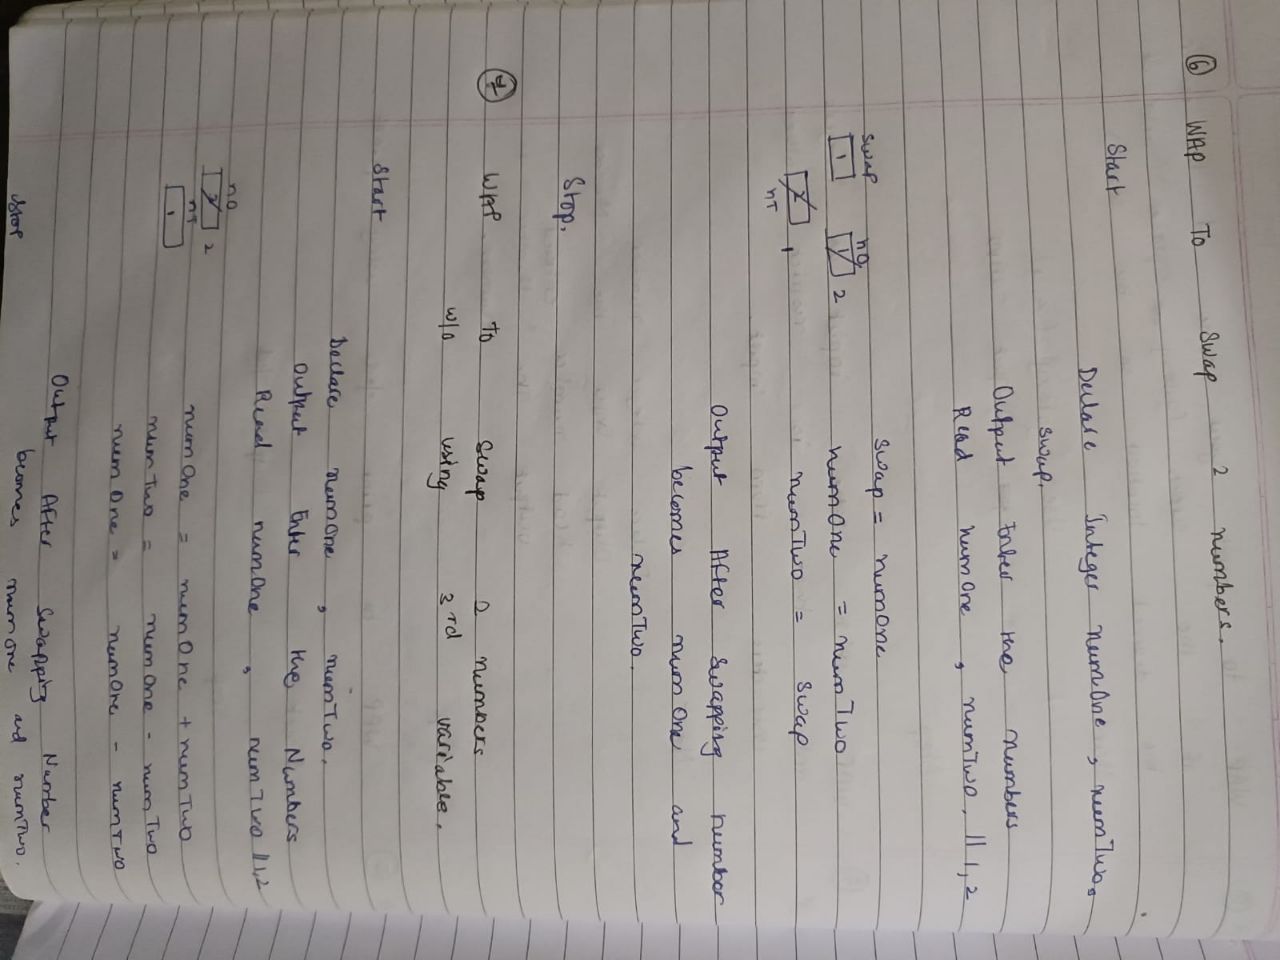 6 WAP To Swap 2 numbers.
Start
Declare Integer numOne, numTwo,
swap.
Output Enter the numbers
Read numOne, numTwo. || 1,2
swap = numOne
numOne = numTwo
numTwo = swap
swap nO
1 1 2
2 1
nT
Output After swapping number
becomes numOne and
numTwo.
Stop.
7 WAP to swap 2 numbers
w/o using 3rd variable.
Start
Declare numOne, numTwo.
Output Enter the Numbers
Read numOne, numTwo || 1,2
nO
2
nT
1
numOne = numOne + numTwo
numTwo = numOne - numTwo
numOne = numOne - numTwo
Output After Swapping Number
becomes numOne and numTwo.
Stop